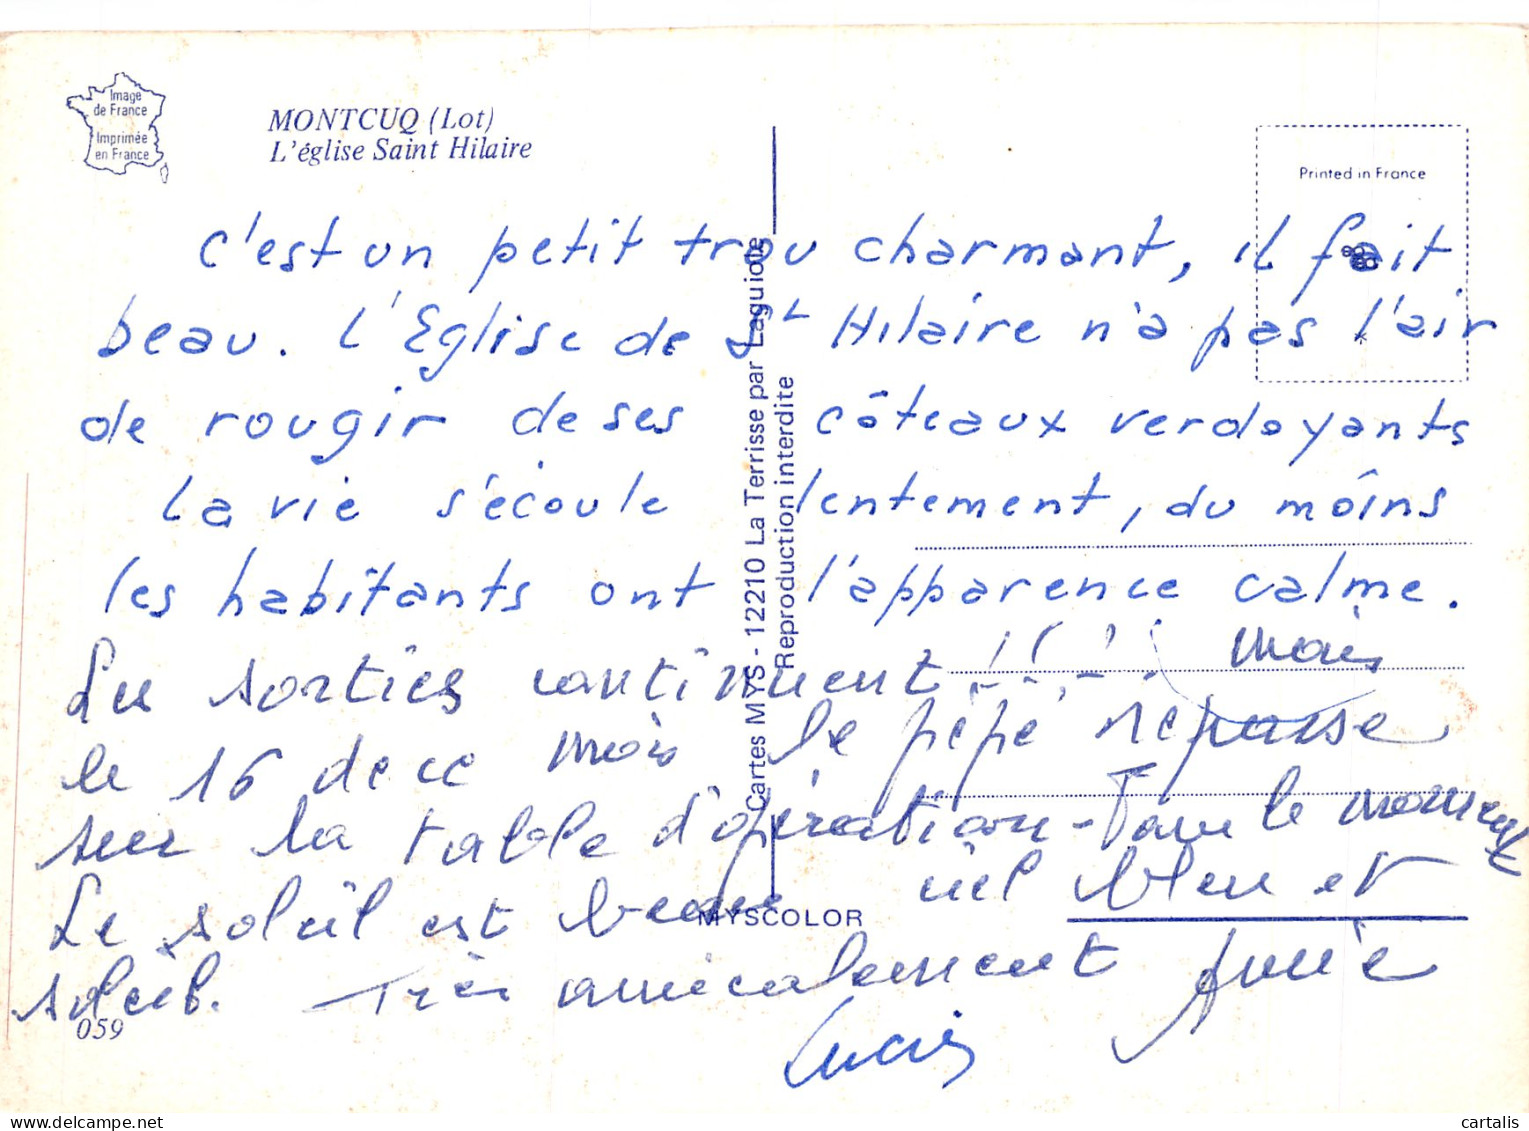 Image
de France
Imprimée
en France
MONTCUQ (Lot)
L'église Saint Hilaire
Printed in France
c'est un petit trou charmant, il fait
beau. L'Eglise de St Hilaire n'a pas l'air
de rougir de ses côteaux verdoyants
La vie s'écoule lentement, du moins
les habitants ont l'apparence calme.
Les sorties continuent !!! mais
le 16 de ce mois le pépé repasse
sur la table d'opération - Pour le moment
Le soleil est beau ciel bleu et
soleil. Très amicalement
Lucien
059
Cartes MYS - 12210 La Terrisse par Laguiole
Reproduction interdite
MYSCOLOR
cartalis